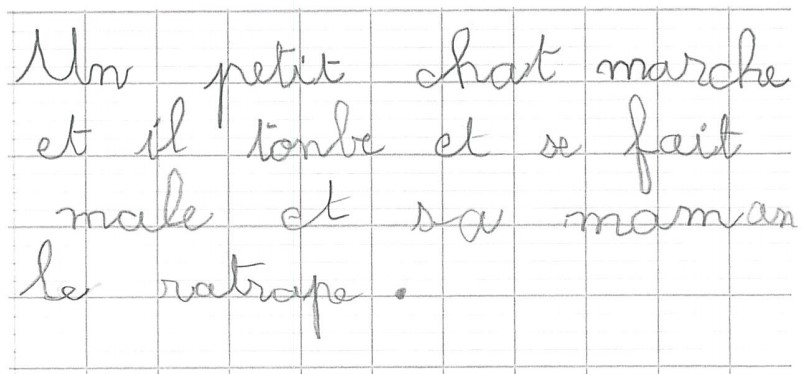 Un petit chat marche
et il tonbe et se fait
male et sa maman
le ratrape.